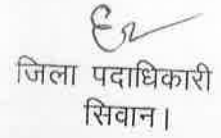 जिला पदाधिकारी
सिवान।